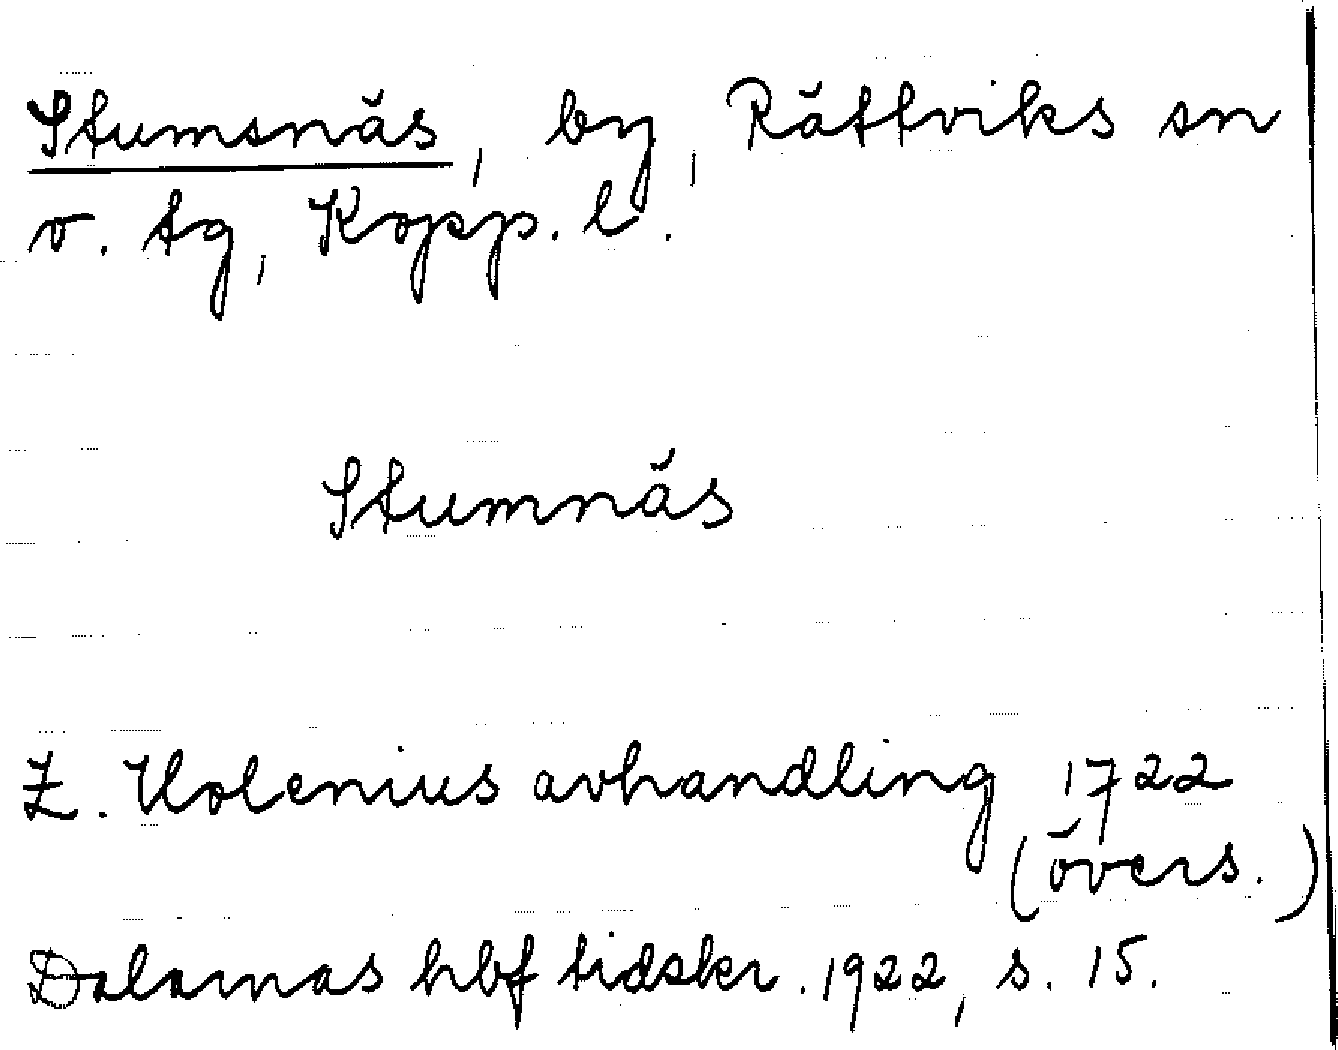 Stumsnäs, by, Rättviks sn
v. tg, Kopp. l.
Stumnäs
Z. Holenius avhandling 1722
(övers.)
Dalarnas hbf tidskr. 1922, s. 15.